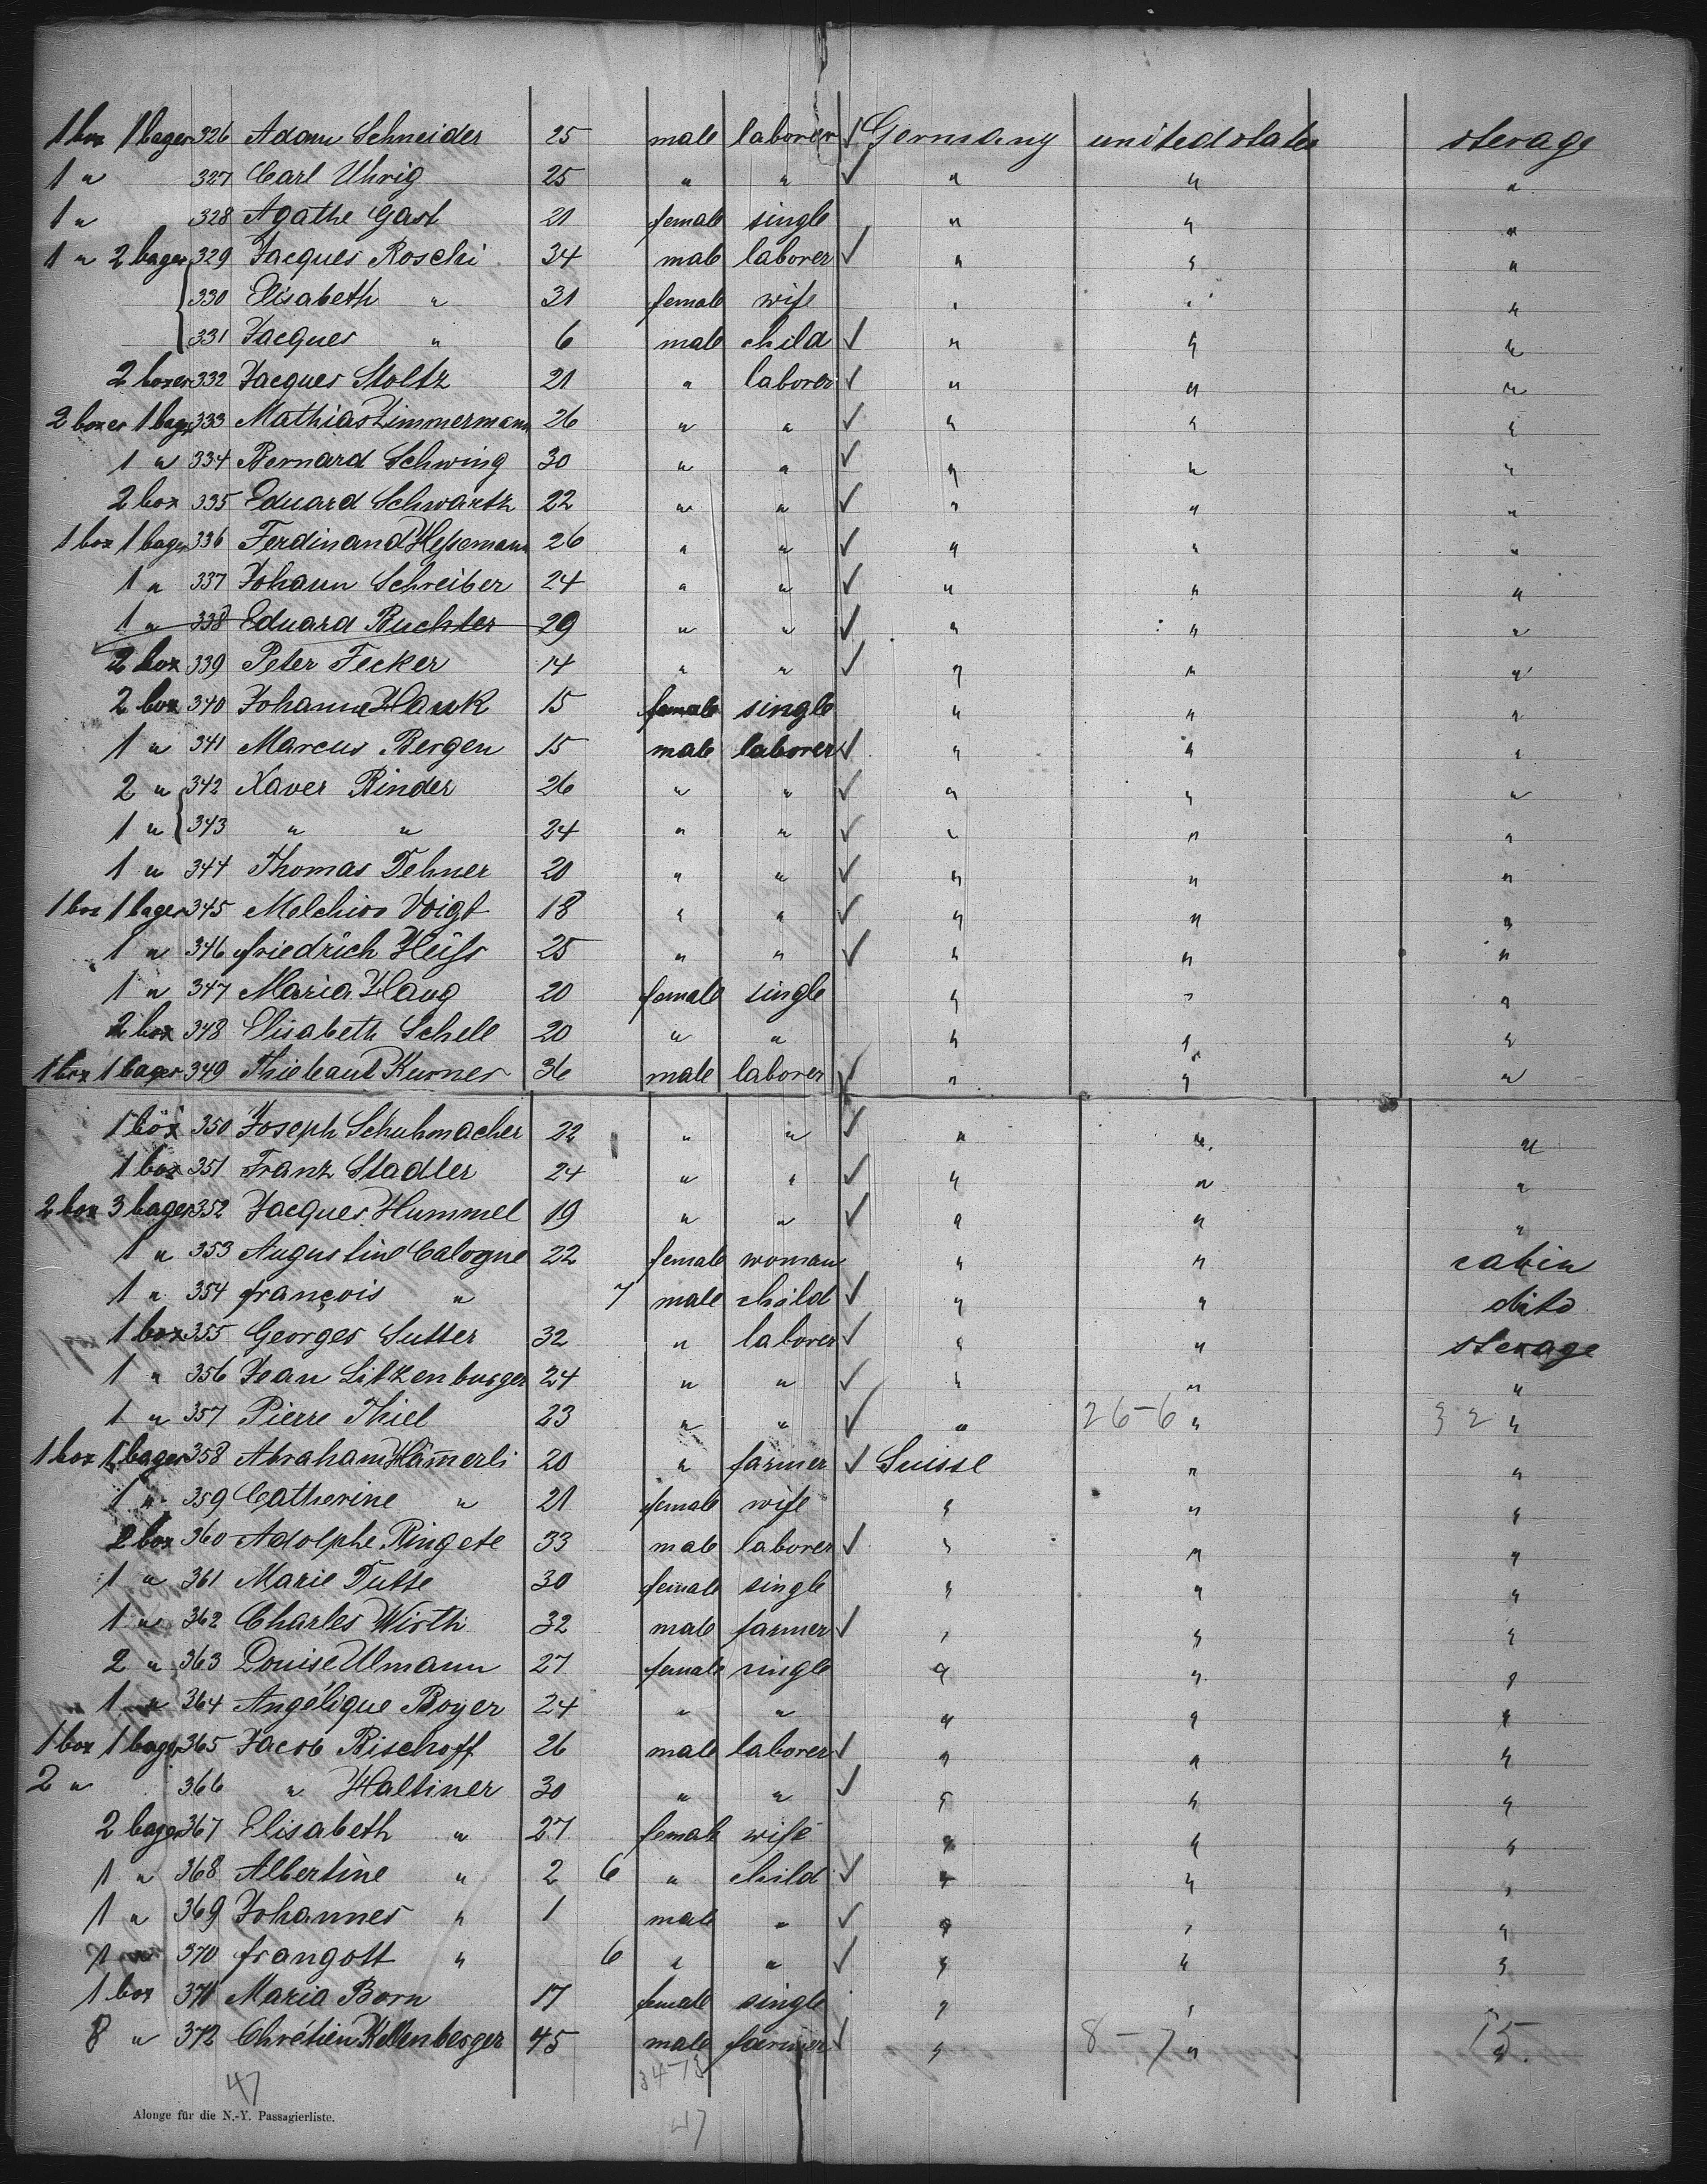 1 box 1 bages 326 Adam Schneider 25 male laborer ✓ Germany united states sterage
1 " 327 Carl Uhrig 25 " " ✓ " " "
1 " 328 Agathe Gast 21 female single " " "
1 " 2 bages 329 Jacques Roschi 34 male laborer ✓ " " "
330 Elisabeth " 31 female wife " " "
331 Jacques " 6 male child ✓ " " "
2 boxes 332 Jacques Stoltz 21 " laborer ✓ " " "
2 boxes 1 bages 333 Mathias Zimmermann 26 " " ✓ " " "
1 " 334 Bernard Schwing 30 " " ✓ " " "
2 box 335 Eduard Schwartz 22 " " ✓ " " "
1 box 1 bages 336 Ferdinand Hessemann 26 " " ✓ " " "
1 " 337 Johann Schreiber 24 " " ✓ " " "
1 " 338 Eduard Buchter 29 " " ✓ " " "
2 box 339 Peter Fecker 14 " " ✓ " " "
2 box 340 Johanna Hauk 15 female single " " "
1 " 341 Marcus Bergen 15 male laborer ✓ " " "
2 " 342 Xaver Rinder 26 " " ✓ " " "
1 " 343 " " 24 " " ✓ " " "
1 " 344 Thomas Dehner 20 " " ✓ " " "
1 box 1 bages 345 Melchior Voigt 18 " " ✓ " " "
1 " 346 friedrich Heiss 25 " " ✓ " " "
1 " 347 Maria Haug 20 female single " " "
2 box 348 Elisabeth Schell 20 " " " " "
1 box 1 bages 349 Thiebaut Kurner 36 male laborer ✓ " " "
1 box 350 Joseph Schuhmacher 22 " " ✓ " " "
1 box 351 Franz Stadler 24 " " ✓ " " "
2 box 3 bages 352 Jacques Hummel 19 " " ✓ " " "
1 " 353 Augustine Calogne 22 female woman " " cabin
1 " 354 françois " 7 male child ✓ " " dito
1 box 355 Georges Sutter 32 " laborer ✓ " " sterage
1 " 356 Jean Litzenburger 24 " " ✓ " " "
1 " 357 Pierre Thiel 23 " " ✓ " 26-6 " 32 "
1 box 1 bages 358 Abraham Häm̄erli 20 " farmer ✓ Suisse " "
1 " 359 Catherine " 21 female wife " " "
2 box 360 Adolphe Ringete 33 male laborer ✓ " " "
1 " 361 Marie Dutte 30 female single " " "
1 " 362 Charles Wirth 32 male farmer ✓ " " "
2 " 363 Louise Ulmann 27 female single " " "
1 " 364 Angélique Boyer 24 " " " " "
1 box 1 bages 365 Jacob Bischoff 26 male laborer ✓ " " "
2 " 366 " Haltiner 30 " " ✓ " " "
2 bages 367 Elisabeth " 27 female wife " " "
1 " 368 Albertine " 2 6 " child ✓ " " "
1 " 369 Johannes " 1 male " ✓ " " "
1 " 370 frangott " 6 " " ✓ " " "
1 box 371 Maria Born 17 female single " " "
8 " 372 Chrétien Kellenberger 45 male farmer ✓ " 8-7 " 15
47 34-13
Alonge für die N.-Y. Passagierliste.
47